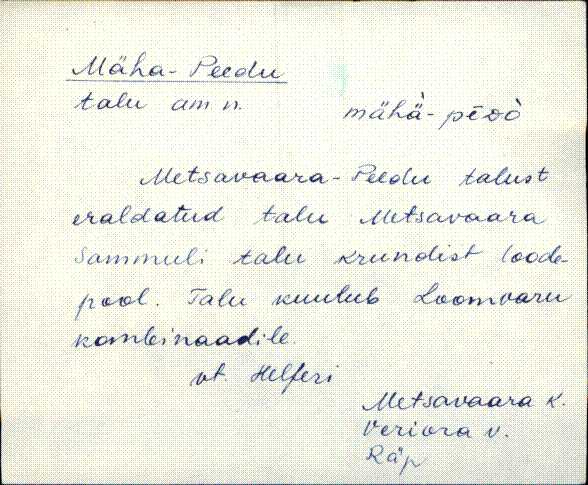 Mäha-Peedu
talu am n. mähà-pēᴅò
Metsavaara-Peedu talust
eraldatud talu Metsavaara
Sammuli talu krundist loode-
pool. Talu kuulub Loomvaru
kombinaadile.
vt. Helferi
Metsavaara k.
Veriora v.
Räp